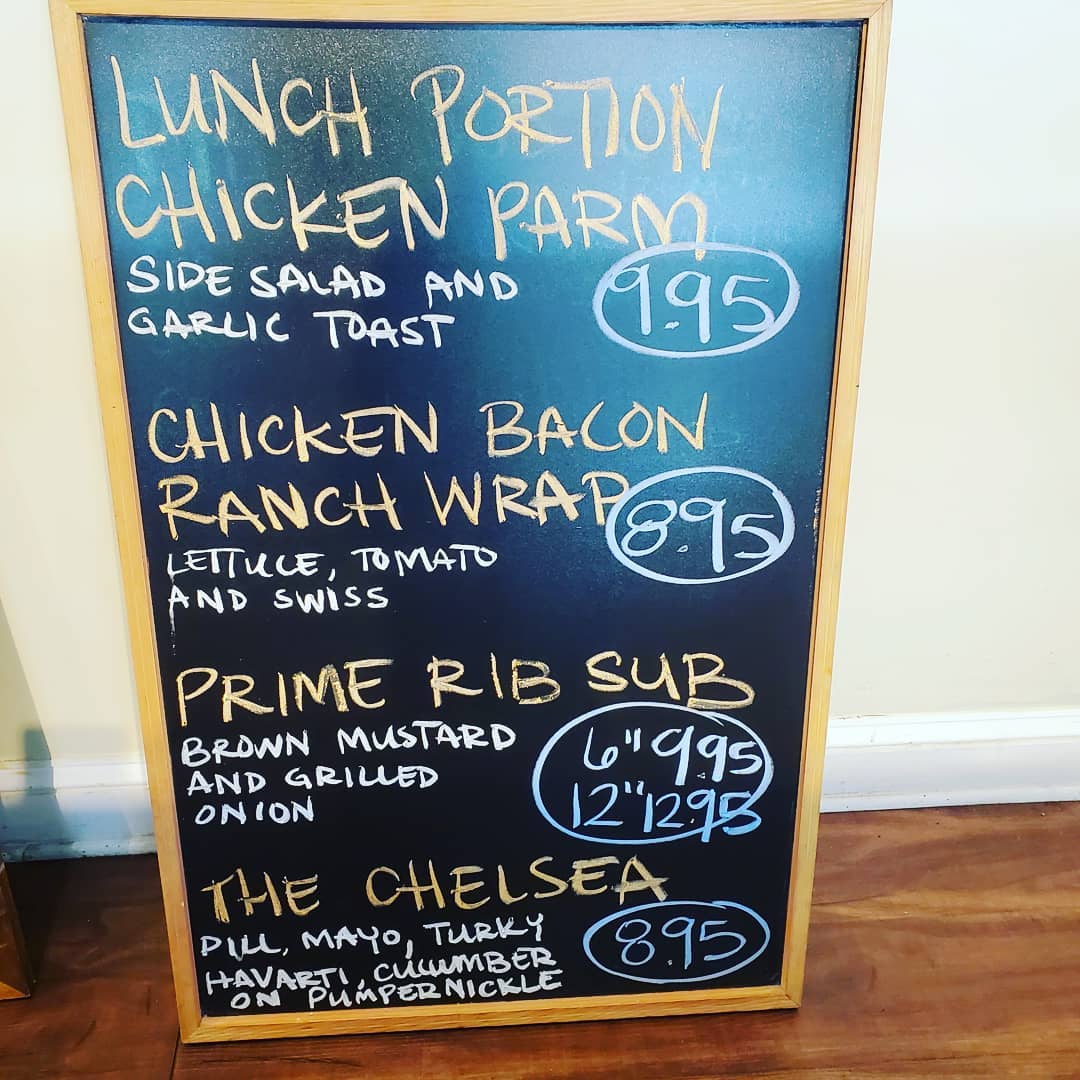 LUNCH PORTION
CHICKEN PARM
SIDE SALAD AND
GARLIC TOAST
9.95
CHICKEN BACON
RANCH WRAP
8.95
LETTUCE, TOMATO
AND SWISS
PRIME RIB SUB
BROWN MUSTARD
AND GRILLED
ONION
6" 9.95
12" 12.95
THE CHELSEA
PILL, MAYO, TURKY
HAVARTI, CUCUMBER
ON PUMPERNICKLE
8.95